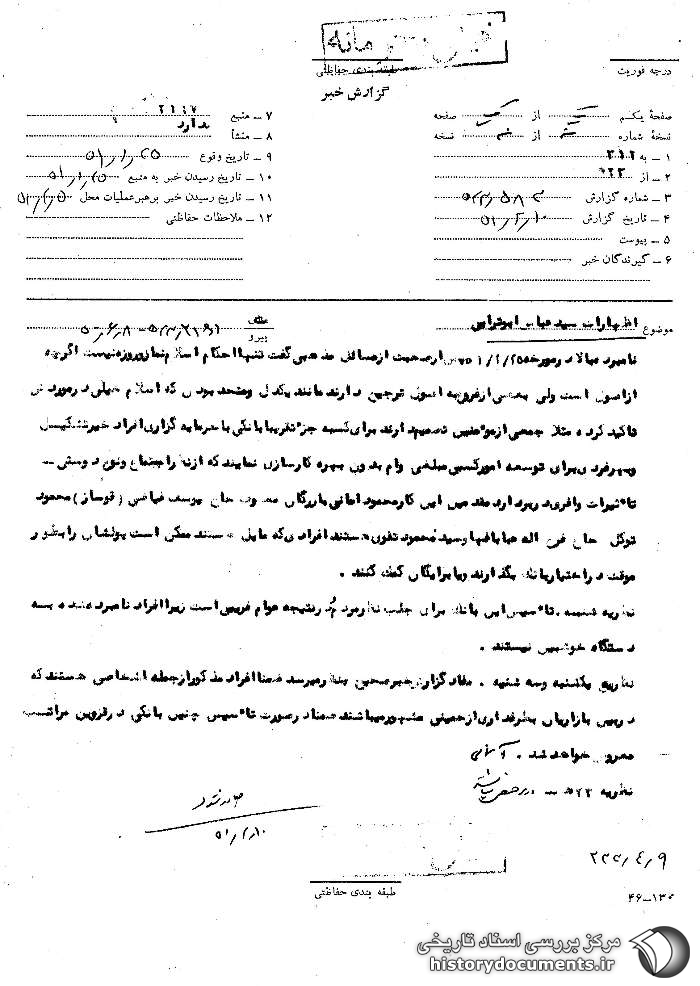 خیلی محرمانه
طبقه بندی حفاظتی
درجه فوریت
گزارش خبر
صفحهٔ یکم از صفحه
نسخهٔ شماره از نسخه
۱ ـ به ۳۱۲
۲ ـ از
۳ ـ شماره گزارش
۴ ـ تاریخ گزارش ۵۱/۲/۱۰
۵ ـ پیوست
۶ ـ گیرندگان خبر
۷ ـ منبع ۲۱۶۷
۸ ـ منشأ ندارد
۹ ـ تاریخ وقوع ۵۱/۱/۲۵
۱۰ ـ تاریخ رسیدن خبر به منبع ۵۱/۱/۲۵
۱۱ ـ تاریخ رسیدن خبر برهبر عملیات محل
۱۲ ـ ملاحظات حفاظتی
موضوع اظهارات سید عباس ابوترابی
پیرو
نامبرده بالا در مورخه ضمن صحبت از مسائل مذهبی گفت تنها احکام اسلام نماز و روزه نیست اگرچه
از اصول است ولی بعضی از فروع به اصول ترجیح دارند مانند یکدل و متحد بودن که اسلام خیلی در مورد آن
تاکید کرده مثلا جمعی از مؤمنین تصمیم دارند برای کسبه جزء تقریبا بانکی با سرمایه گزاری افراد خیر تشکیل
و بهر فردی برای توسعه امور کسبی مبلغی وام بدون بهره کارسازی نمایند که از نظر اجتماع و نوع دوستی ـ
تاثیرات وافری دربر دارد مقدمین این کار محمود امانی بازرگان حاج یوسف فیاضی (فوساز) محمود
توکل حاج فرج اله و سید محمود تقوی هستند افرادی که مایل هستند ممکن است پولشان را بطور
موقت در اختیار بانک بگذارند و یا برایگان کمک کنند .
نظریه شنبه . تاسیس این بانک برای جلب نظر مردم و در نتیجه عوام فریبی است زیرا افراد نامبرده شده به
دستگاه خوشبین نیستند .
نظریه یکشنبه و سه شنبه . مفاد گزارش خبر صحیح بنظر میرسد ضمنا افراد مذکور از جمله اشخاصی هستند که
در بین بازاریان بطرفداری از خمینی مشهور میباشند ضمنا در صورت تاسیس چنین بانکی در قزوین مراتب
معروض خواهد شد .
نظریه ۲۲ه ـ
۵۱/۲/۱۰
طبقه بندی حفاظتی
۴۶-۱۳۰
مرکز بررسی اسناد تاریخی
historydocuments.ir